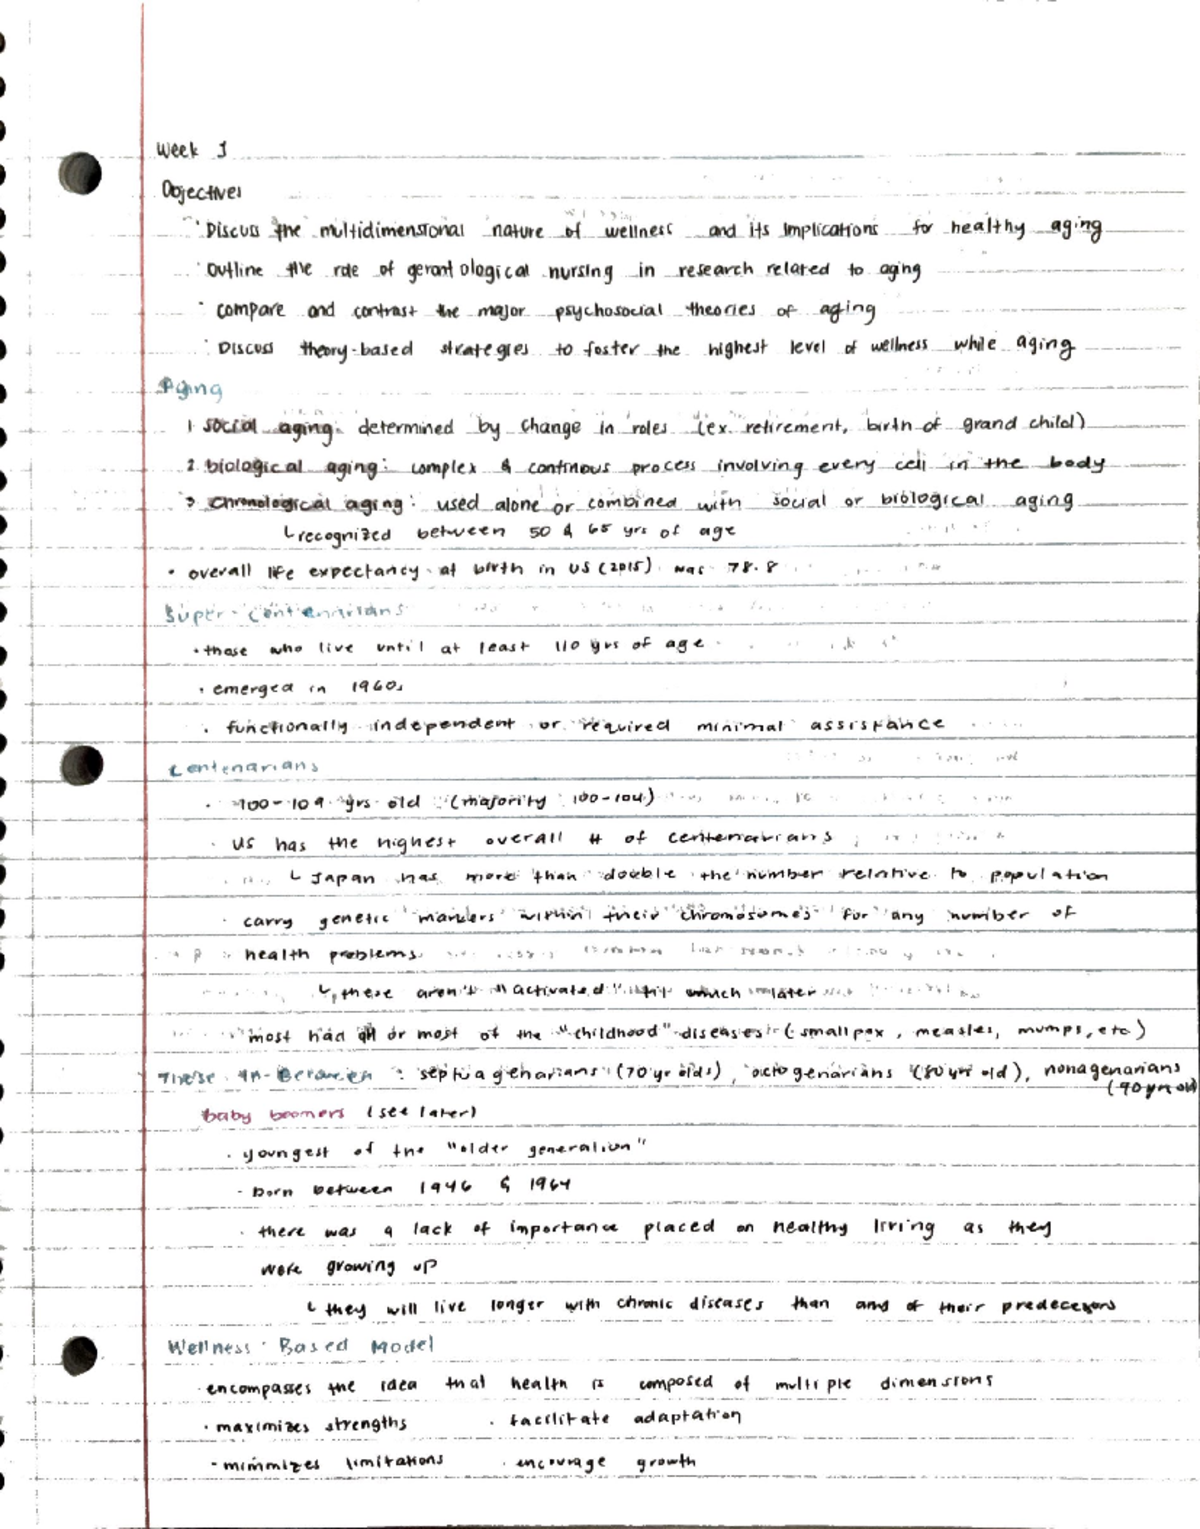 Week 1
Objectives
· Discuss the multidimensional nature of wellness and its implications for healthy aging
· Outline the role of gerontological nursing in research related to aging
· compare and contrast the major psychosocial theories of aging
· Discuss theory-based strategies to foster the highest level of wellness while aging
Aging
1. social aging: determined by change in roles (ex. retirement, birth of grand child)
2. biological aging: complex & continous process involving every cell in the body
3. chronological aging: used alone or combined with social or biological aging
└ recognized between 50 & 65 yrs of age
· overall life expectancy at birth in US (2015) was 78.8
Super-Centenarians
· those who live until at least 110 yrs of age
· emerged in 1960s
· functionally independent or required minimal assistance
Centenarians
· 100-109 yrs old (majority 100-104)
· US has the highest overall # of centenarians
└ Japan has more than double the number relative to population
· carry genetic markers within their chromosomes for any number of
health problems
└ these aren't "activated" til much later
· most had all or most of the "childhood" diseases (smallpox, measles, mumps, etc)
Those In-Between : septuagenarians (70 yr olds), octogenarians (80 yr old), nonagenarians
(90 yr old)
baby boomers (see later)
· youngest of the "older generation"
· born between 1946 & 1964
· there was a lack of importance placed on healthy living as they
were growing up
└ they will live longer with chronic diseases than of their predecesors
Wellness-Based Model
· encompasses the idea that health is composed of multiple dimensions
· maximizes strengths · facilitate adaptation
· minimizes limitations · encourage growth